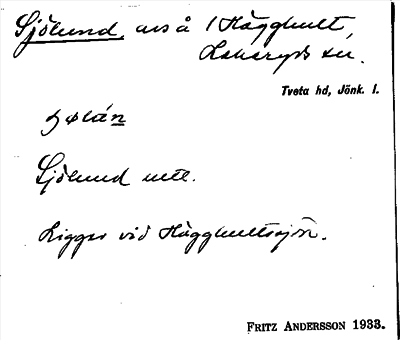 Sjölund, avs å 1 Hägghult,
Lekeryds sn.
Tveta hd, Jönk. l.
Sjölund utt.
Ligger vid Hägghultssjön.
FRITZ ANDERSSON 1933.